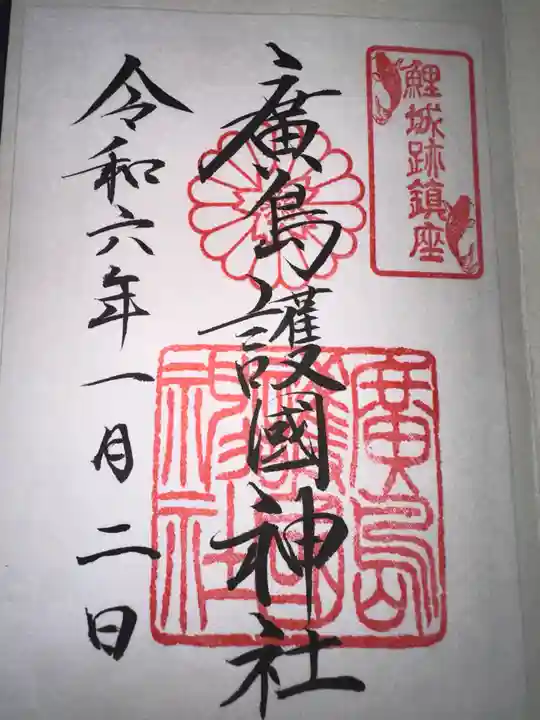 鯉城跡鎮座
廣島護國神社
廣島護國神社
令和六年一月二日